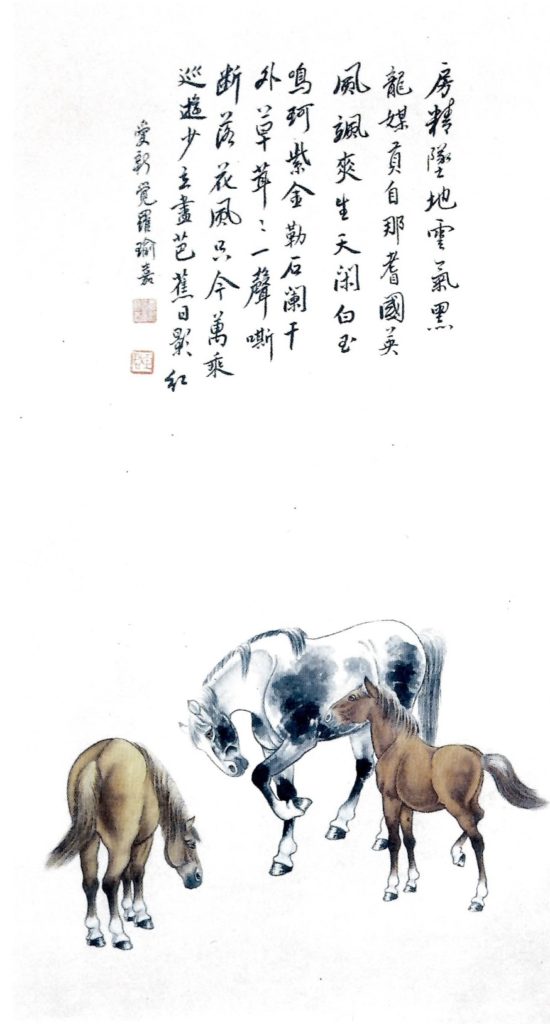 房精墜地雲氣黑
龍媒貢自那耆國英
風颯爽生天閑白玉
鳴珂紫金勒石闌干
外草茸〻一聲嘶
断落花風只今萬乘
巡遊少立盡芭蕉日影紅
愛新覺羅瑜嘉